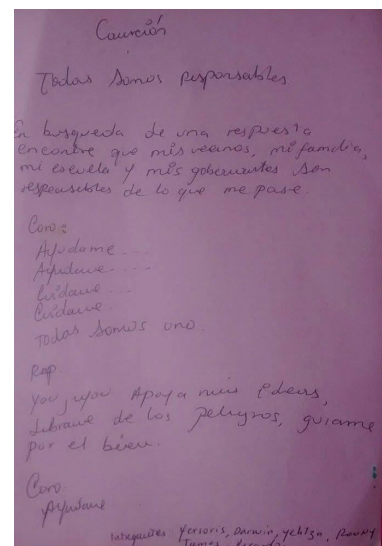 Canción
Todos somos responsables
En busqueda de una respuesta
encontre que mis vecinos, mi familia,
mi escuela y mis gobernantes son
responsables de lo que me pase.
Coro:
Ayudame....
Ayudame.....
Cuidame....
Cuidame.
Todos somos uno.
Rap
You, you Apoya mis ideas,
Librame de los peligros, guiame
por el bien.
Coro.
Ayudame
Integrantes: Yersoris, Darwin,